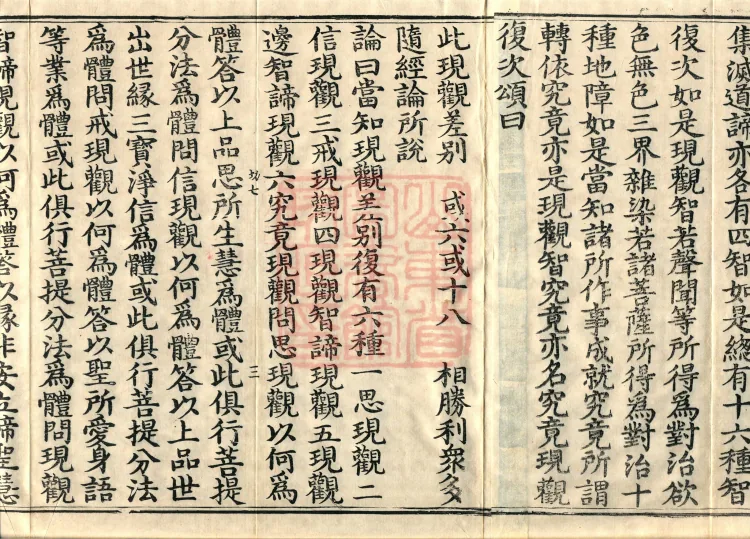 集滅道諦亦各有四智如是緫有十六種智
復次如是現觀智若聲聞等所得爲對治欲
色無色三界雜染若諸菩薩所得爲對治十
種地障如是當知諸所作事成就究竟所謂
轉依究竟亦是現觀智究竟亦名究竟現觀
復次頌曰
此現觀差別　或六或十八　相勝利衆多
隨經論所說
論曰當知現觀差別復有六種一思現觀二
信現觀三戒現觀四現觀智諦現觀五現觀
邊智諦現觀六究竟現觀問思現觀以何爲
三
體答以上品思所生慧爲體或此俱行菩提
分法爲體問信現觀以何爲體答以上品世
出世緣三寶淨信爲體或此俱行菩提分法
爲體問戒現觀以何爲體答以聖所愛身語
等業爲體或此俱行菩提分法爲體問現觀
智諦現觀以何爲體答以緣非安立諦聖慧